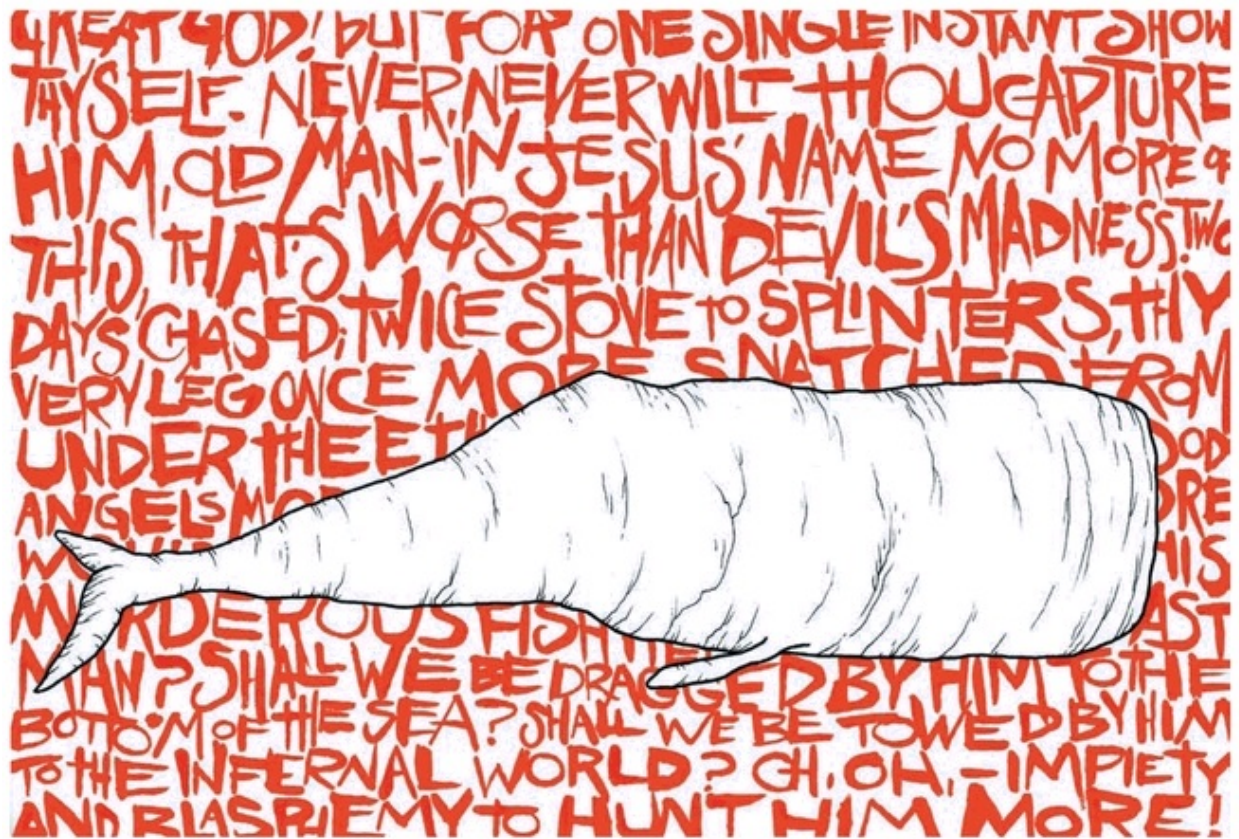 GREAT GOD! BUT FOR ONE SINGLE INSTANT SHOW
THYSELF. NEVER, NEVER WILT THOU CAPTURE
HIM, OLD MAN-IN JESUS' NAME NO MORE OF
THIS, THAT'S WORSE THAN DEVIL'S MADNESS. TWO
DAYS' CHASED; TWICE STOVE TO SPLINTERS, THY
VERY LEG ONCE MORE SNATCHED FROM
UNDER THEE
ANGELS
MURDEROUS FISH
MAN? SHALL WE BE DRAGGED BY HIM TO THE
BOTTOM OF THE SEA? SHALL WE BE TOWED BY HIM
TO THE INFERNAL WORLD? OH, OH,-IMPIETY
AND BLASPHEMY TO HUNT HIM MORE!